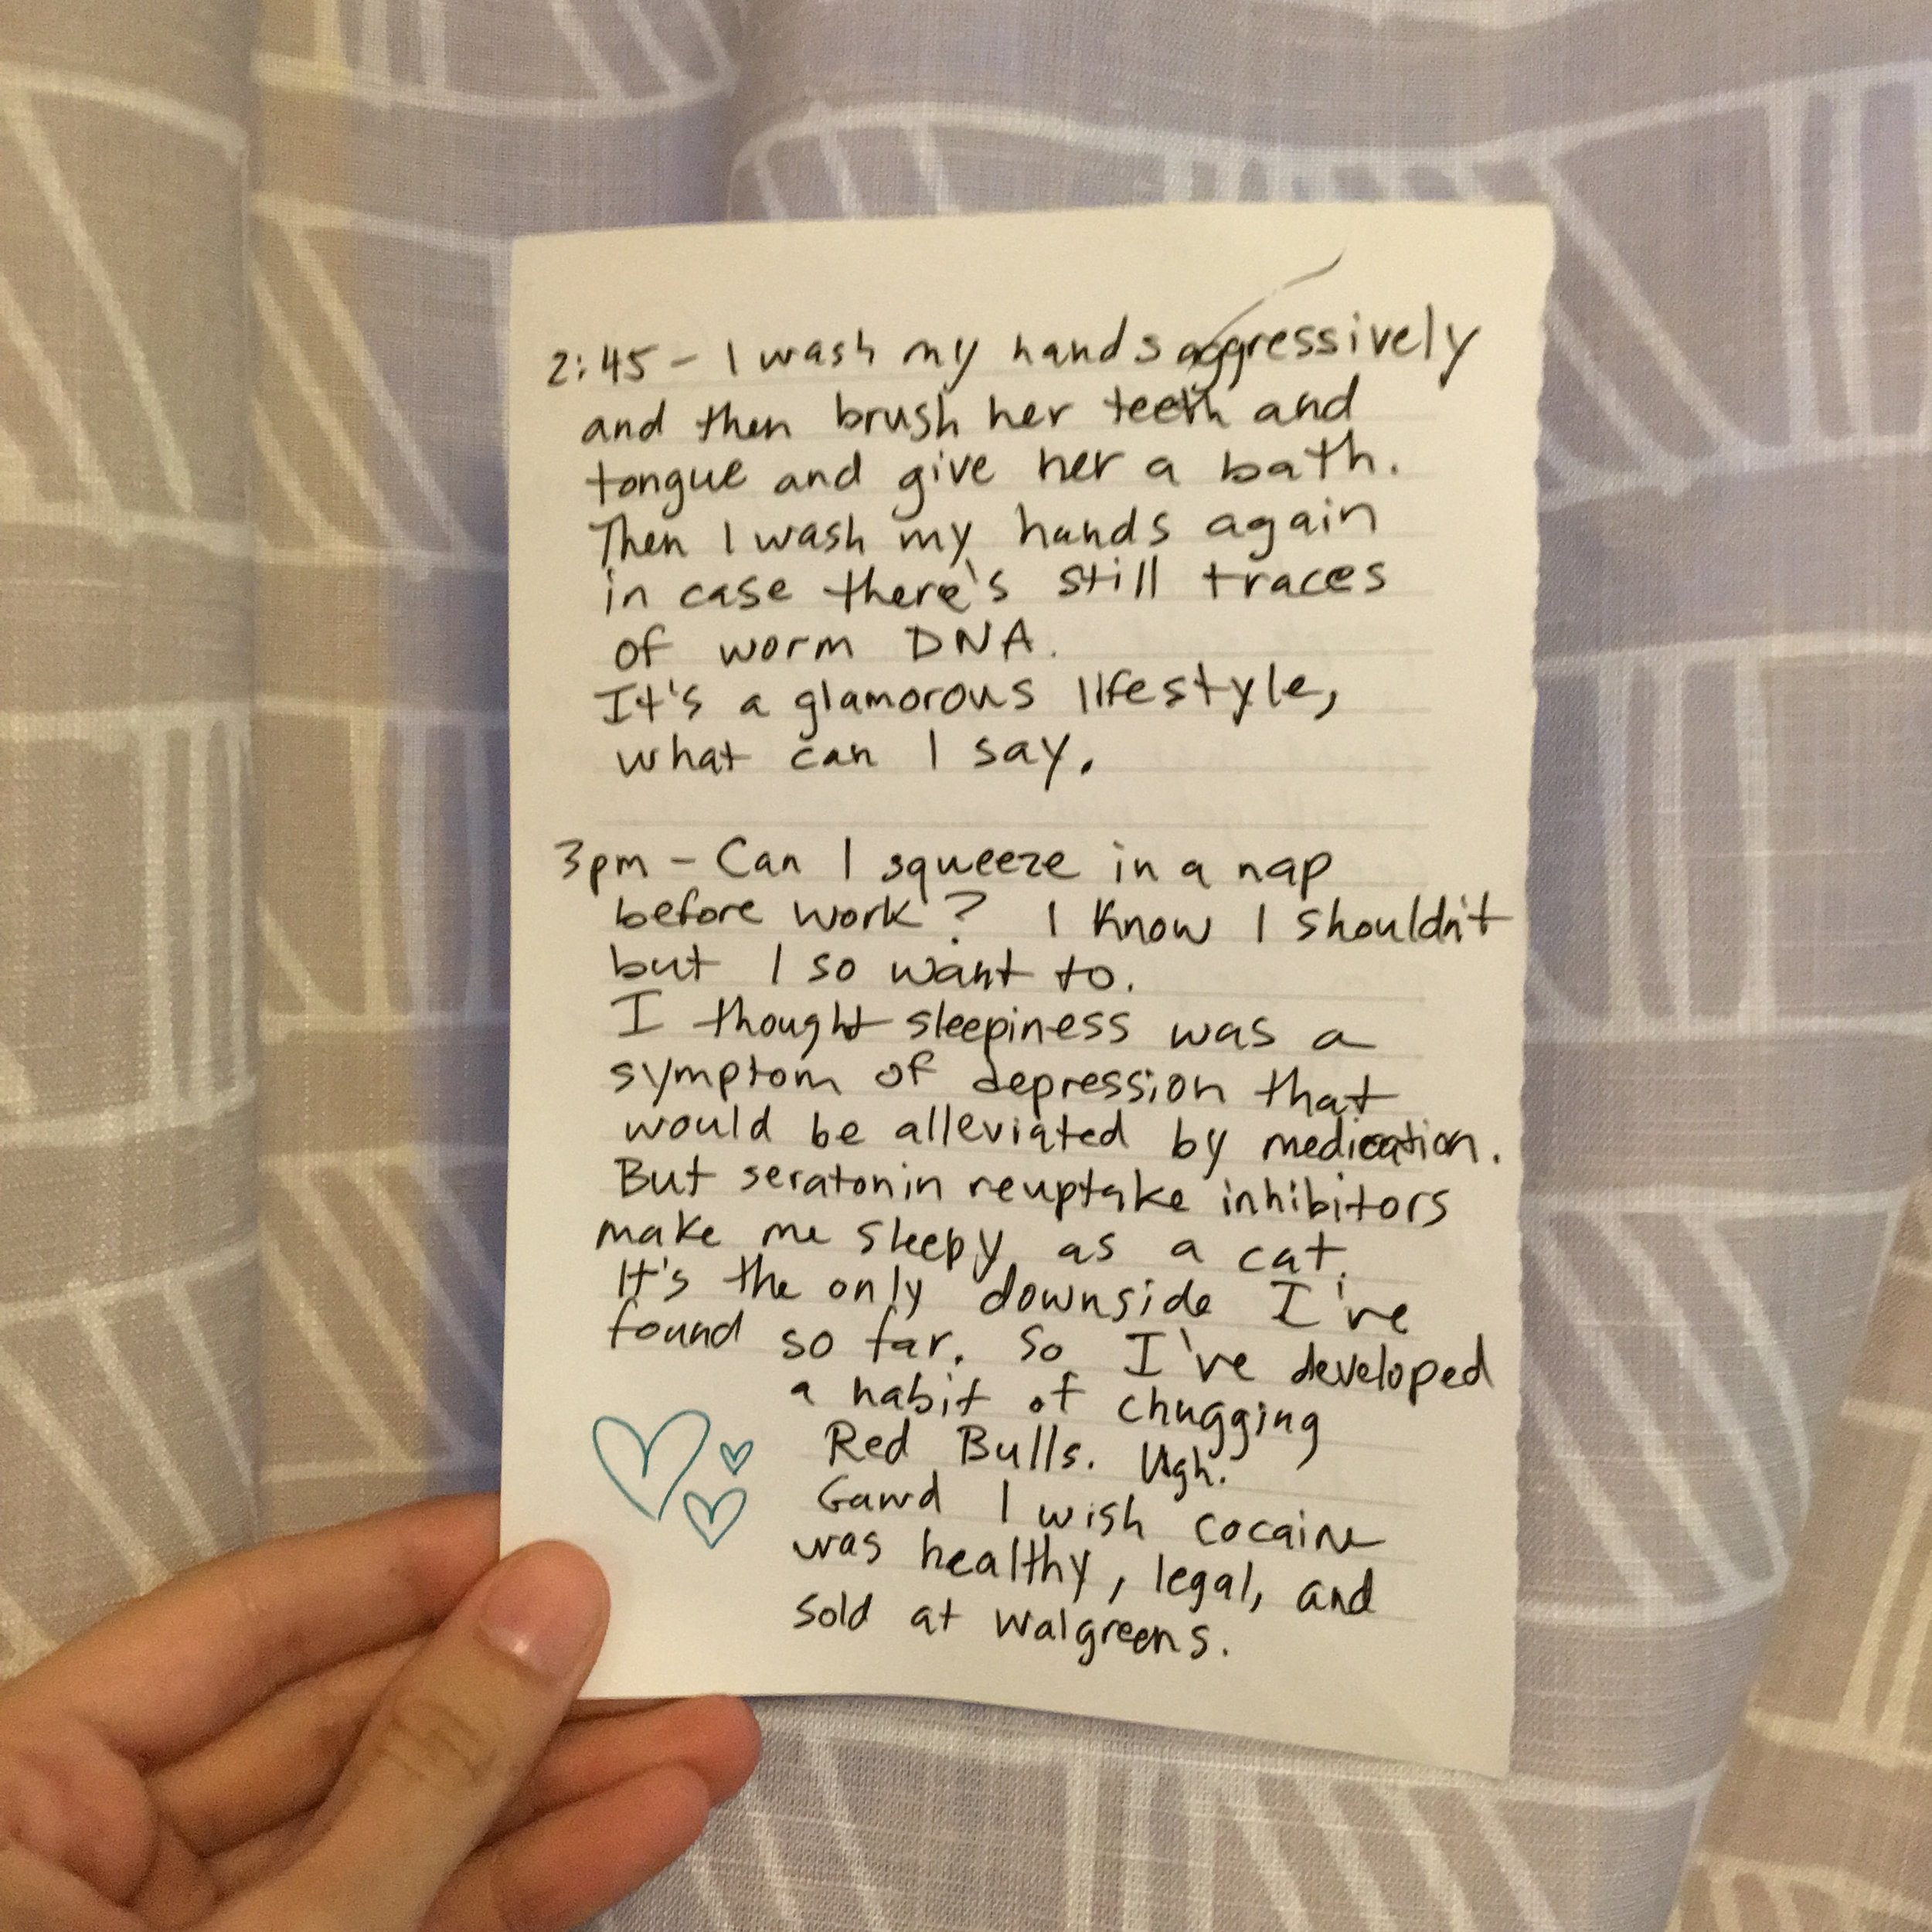 2:45 - I wash my hands aggressively
and then brush her teeth and
tongue and give her a bath.
Then I wash my hands again
in case there's still traces
of worm DNA.
It's a glamorous lifestyle,
what can I say.
3pm - Can I squeeze in a nap
before work? I know I shouldn't
but I so want to.
I thought sleepiness was a
symptom of depression that
would be alleviated by medication.
But seratonin reuptake inhibitors
make me sleepy as a cat.
It's the only downside I've
found so far. So I've developed
a habit of chugging
Red Bulls. Ugh.
Gawd I wish cocaine
was healthy, legal, and
sold at Walgreens.